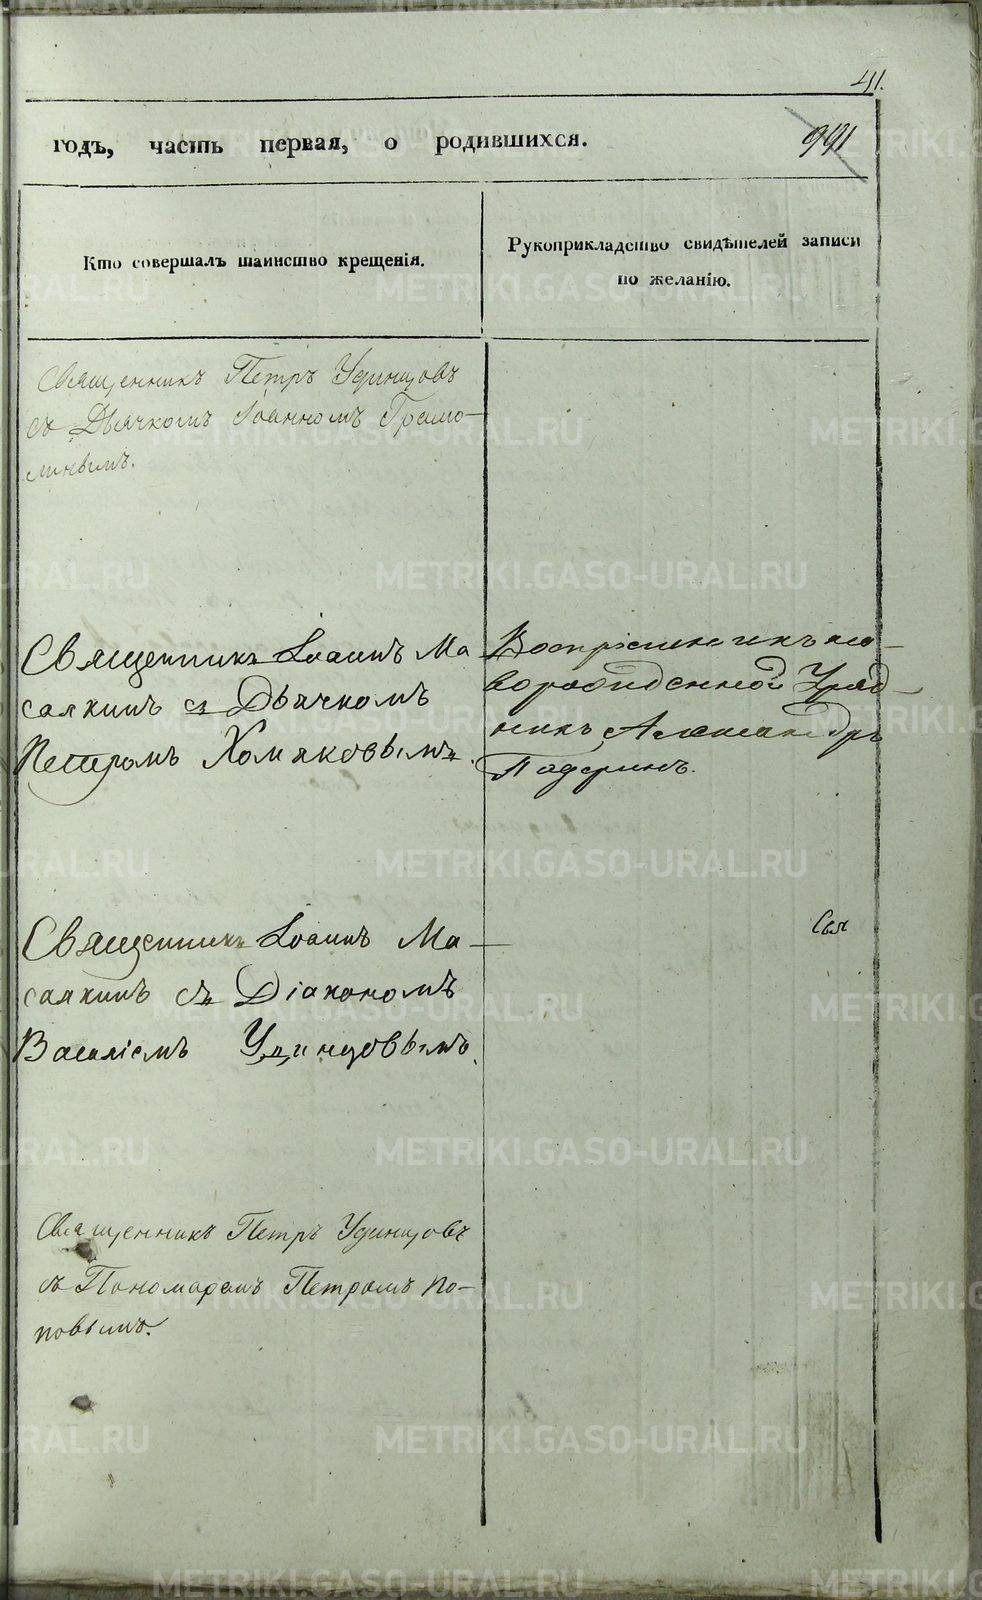 41.
годъ, часть первая, о родившихся.
991
Кто совершалъ таинство крещенія.
Рукоприкладство свидѣтелей записи
по желанію.
Священникъ Петръ Удинцовъ
съ Дьячкомъ Іоанномъ Грамо-
линымъ.
Священникъ Іоаннъ Ма
салкинъ съ Дьячкомъ
Петромъ Хомяковымъ.
Воспріемникъ но-
ворожденной Уряд-
никъ Александръ
Падеринъ.
Священникъ Іоаннъ Ма-
салкинъ съ Діакономъ
Василіемъ Удинцовымъ.
Свя
Священникъ Петръ Удинцовъ
съ Пономаремъ Петромъ По-
повымъ.
METRIKI.GASO-URAL.RU